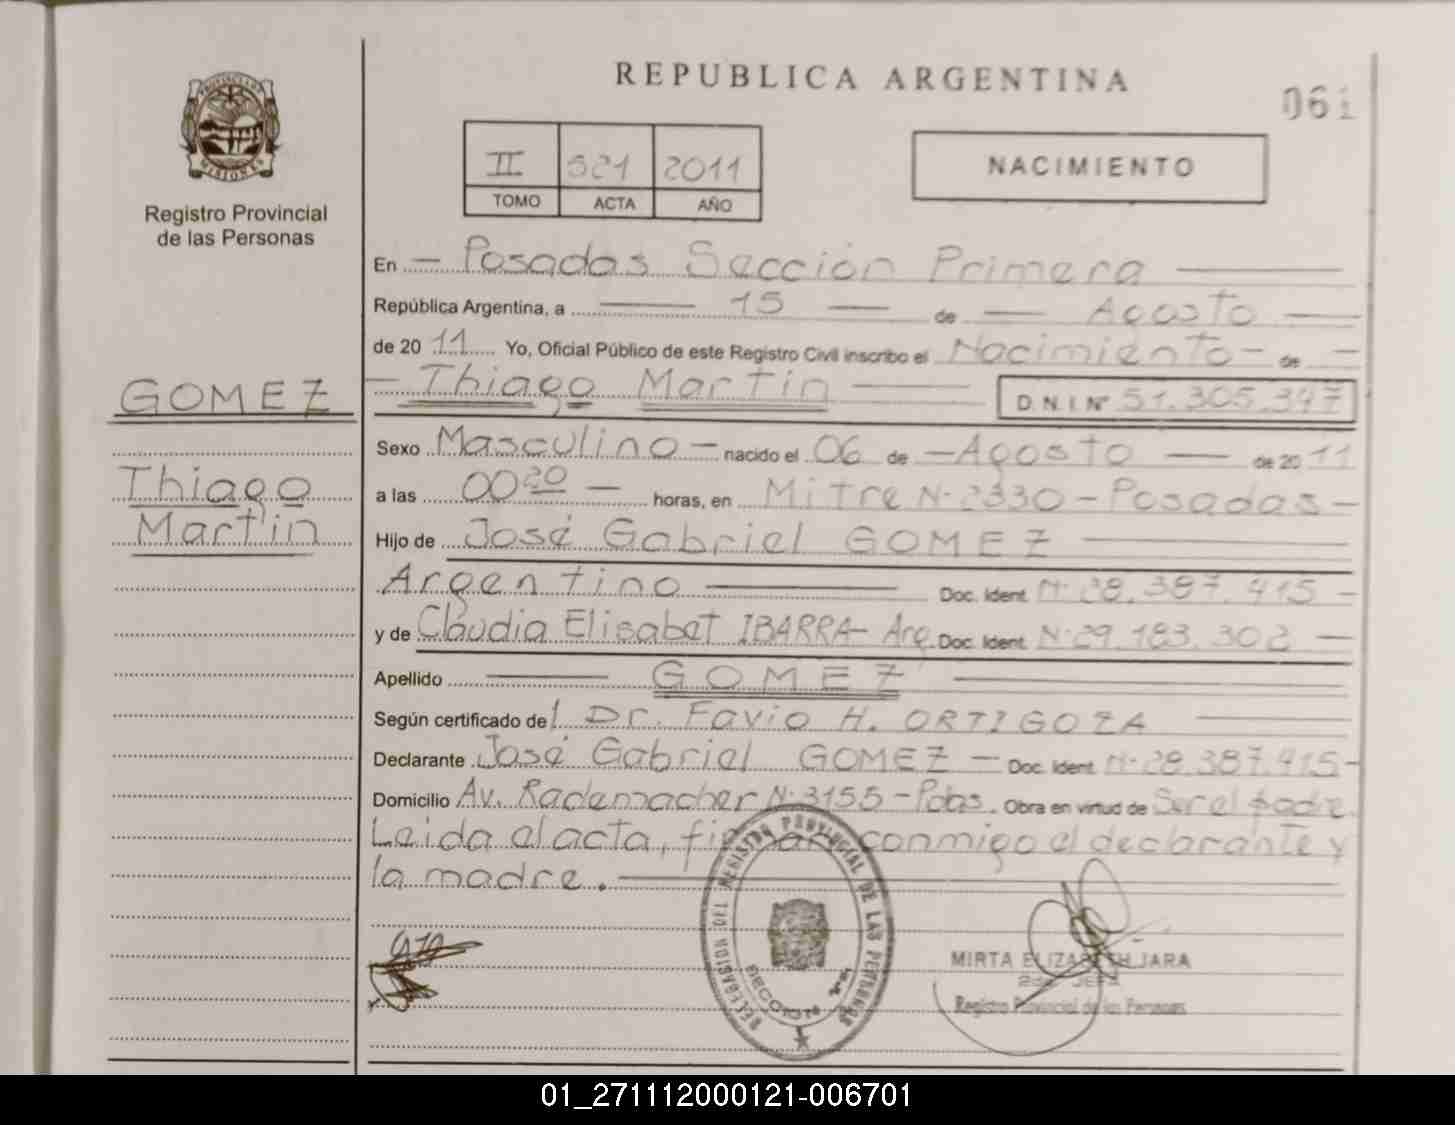 REPUBLICA ARGENTINA
061
PROVINCIA DE
MISIONES
Registro Provincial
de las Personas
II 521 2011
TOMO ACTA AÑO
NACIMIENTO
En - Posadas Sección Primera
República Argentina, a 15 de Agosto
de 2011 Yo, Oficial Público de este Registro Civil inscribo el Nacimiento - de -
GOMEZ
- Thiago Martin D.N.I. Nº 51.305.347
Sexo Masculino - nacido el 06 de - Agosto - de 2011
Thiago
a las 00 20 - horas, en Mitre N° 2330 - Posadas -
Martin
Hijo de José Gabriel GOMEZ
Argentino Doc. Ident. N° 28.387.415 -
y de Claudia Elisabet IBARRA - Arg. Doc. Ident. N° 29.183.302 -
Apellido GOMEZ
Según certificado del Dr. Favio H. ORTIGOZA
Declarante José Gabriel GOMEZ - Doc. Ident. N° 28.387.415 -
Domicilio Av. Rademacher N° 3155 - Pdas. Obra en virtud de Ser el padre.
Leida el acta, firman conmigo el declarante y
la madre.
DELEGACION DEL REGISTRO PROVINCIAL DE LAS PERSONAS
SECCION 1ra
MIRTA ELIZABETH JARA
JEFA
Registro Provincial de las Personas
01_271112000121-006701